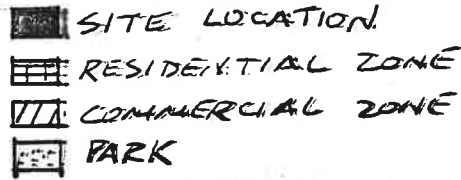 SITE LOCATION
RESIDENTIAL ZONE
COMMERCIAL ZONE
PARK